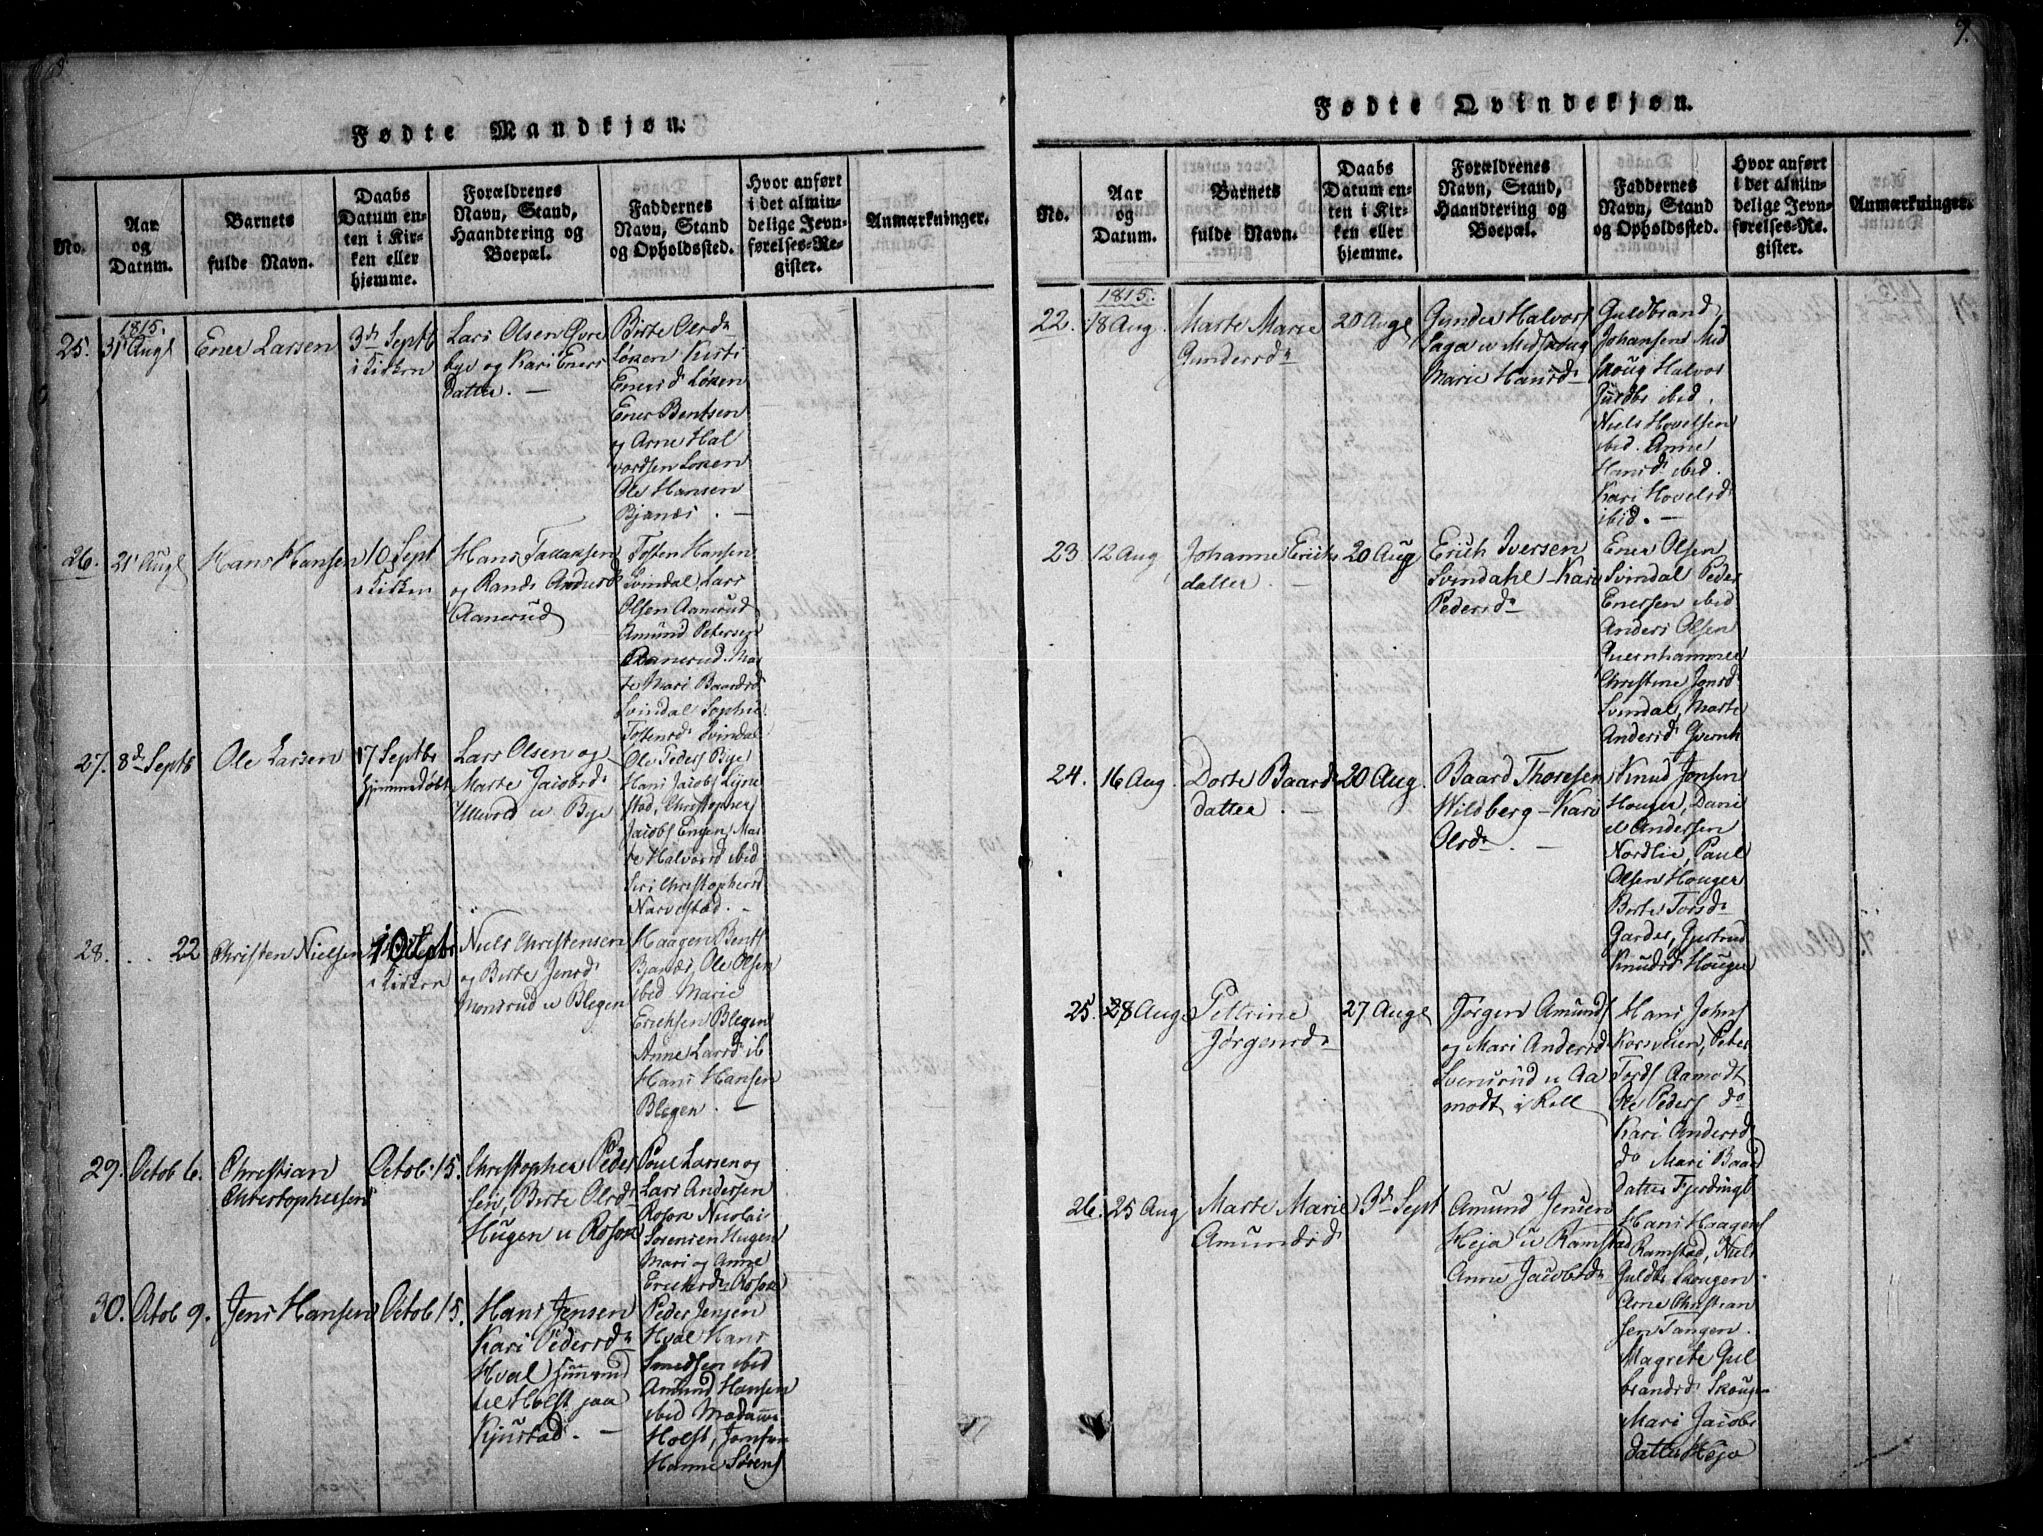 8.
Fødte Mandkjøn.
No.
Aar
og
Datum.
Barnets
fulde Navn.
Daabs
Datum en-
ten i Kir-
ken eller
hjemme.
Forældrenes
Navn, Stand,
Haandtering og
Boepæl.
Faddernes
Navn, Stand
og Opholdsted.
Hvor anført
i det almin-
delige Jevn-
førelses-Re-
gister.
Anmærkninger.
25.
1815.
31 Augl
Ener Larsen
3d Septb
i Kirken
Lars Olsen Øvre
bye og Kari Eners
Datter. —
Birte Olsd
Løken Kirsti
Enersd Løken
Ener Bentsen
og Arne Hal
vordsen Løken
Ole Hansen
Bjanæs. —
26.
21 Augl
Hans Hansen
10 Sept
i Kirken
Hans
og Randi
Aanerud
Tosten Hansen
Svindal, Lars
Olsen Aanerud
Amund Petersen
Aanerud. Mar
te Mari Baardsd
Svindal Sophie
Tostensd Svindal
27.
8d Septb
Ole Larsen
17 Septbr
Hjemmedøbt
Lars Olsen og
Marte Jacobsd
u Bye
Ole Peders Bye
Hans Jacobs
stad, Christopher
Jacobs Engen, Mar
te Halvorsd ibid
Siri Christophersd
Narvestad. —
28.
. . 22
Christen Nielsen
1 Octbr
i Kirken
Niels Christensen
og Birte Jensd
Monsrud u Blegen
Haagen Bents
Bjanæs, Ole Olsen
ibid Marie
Ericksen Blegen
Anne Larsd ib
Hans Hansen
Blegen. —
29.
Octob 6.
Christian
Christophersen
Octob. 15.
Christopher Peder
sen, Birte Olsd
Hugen u Roson
Poul Larsen og
Lars Andersen
Roson Nicolai
Sorensen Hugen
Mari og Anne
Ericksd Roson
30.
Octob 9.
Jens Hansen
Octob 15.
Hans Jensen
Kari Pedersd
Hval
til Holst paa
Kjustad. —
Peder Jensen
Hval Hans
Smedsen ibid
Amund Hansen
ibid Madame
Holst, Jomfru
Hanne Sørens
9.
Fødte Qvindekjøn.
No.
Aar
og
Datum.
Barnets
fulde Navn.
Daabs
Datum en-
ten i Kir-
ken eller
hjemme.
Forældrenes
Navn, Stand,
Haandtering og
Boepæl.
Faddernes
Navn, Stand
og Opholdssted.
Hvor anført
i det almin-
delige Jevn-
førelses-Re-
gister.
Anmærkninger.
22.
1815.
18 Aug.
Marte Marie
Gundersd
20 Augl
Gunder Halvors
Saga u Midskoug
Marie Hansd
Guldbrand
Johansens Mid
skoug Halvor
Guldbr ibid.
Niels Hovelsen
ibid. Anne
Hansd ibid.
Kari Hovelsd
ibid. —
23
12 Aug
Johanne Ericks
datter. —
20 Aug
Erich Iversen
Svindahl – Kari
Pedersd
Ener Olsen
Svindal Peder
Enersen ibid
Anders Olsen
Quernhammer
Christine Jonsd
Svindal, Marte
Andersd Qvernh
24.
16 Aug.
Dorte Baards
datter. —
20 Aug.
Baard Thoresen
Wildberg – Kari
Olsd. —
Knud Jonsen
Houger, Dani
el Andersen
Nordlie, Paul
Olsen Houger
Berte Torsd
Garder, Gjertrud
Knudsd Houger
25.
28 Aug
Pettrine
Jørgensd
27 Augl
Jørgen Amunds
og Mari Andersd
Svenerud u Aa
modt i Roll
Hans Johns
Korsveien, Peter
Tords Aamodt
Ole Peders do
Kari Andersd
do Mari Baard
Datter Fjerdingb
26.
25 Aug
Marte Marie
Amundsd
3d Sept
Amund Jensen
Heja u Ramstad
Anne Jacobsd
Hans Haagens
Ramstad, Niels
Guldbr Skougen
Arne Christian
sen Tangen.
Magrete Gul
brandsd Skougen
Mari Jacobs
datter Heja